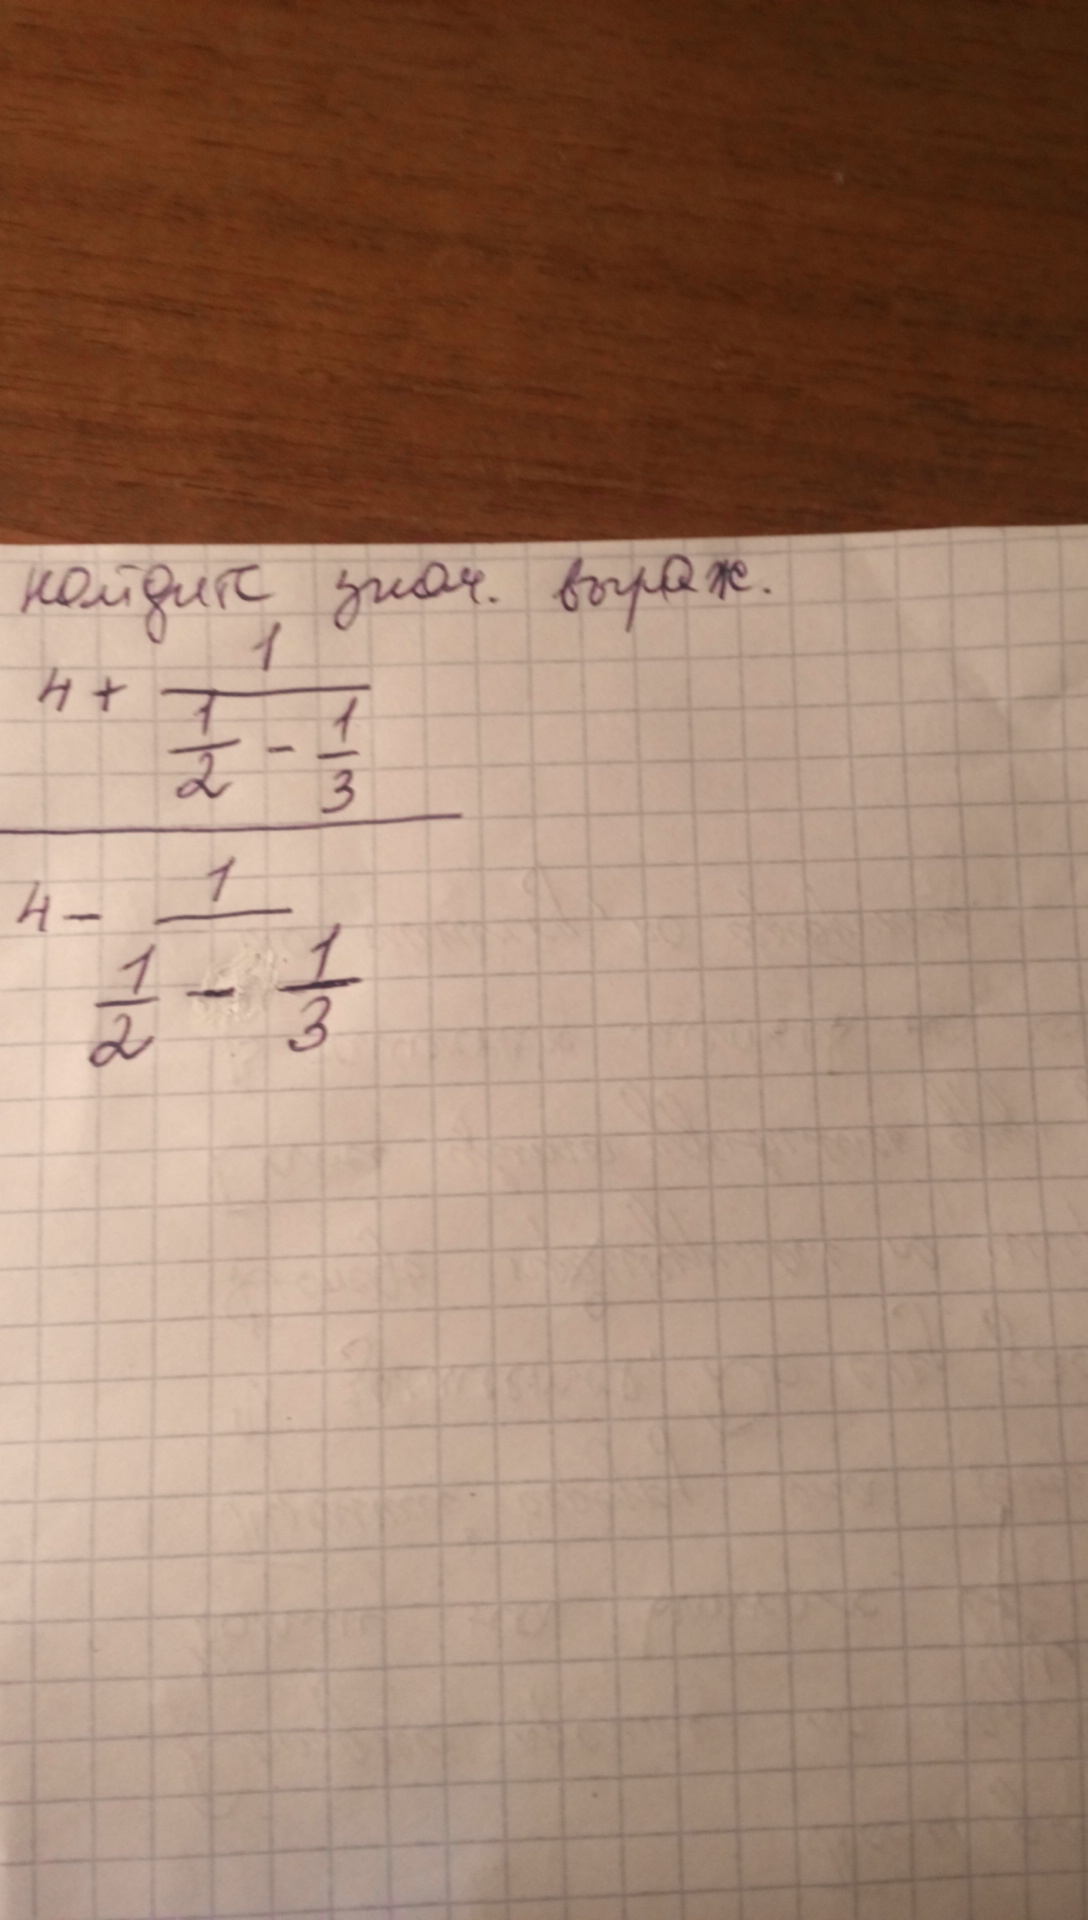 найдите знач. выраж.
4 + 1
1/2 - 1/3
4 - 1
1/2 - 1/3